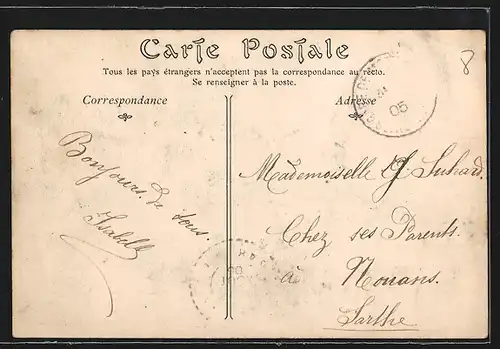 Carte Postale
Tous les pays étrangers n'acceptent pas la correspondance au recto.
Se renseigner à la poste.
Correspondance
Adresse
8
05
Bonjours de tous.
Isabelle
Mademoiselle Suhard.
Chez ses Parents.
à Nouans.
Sarthe